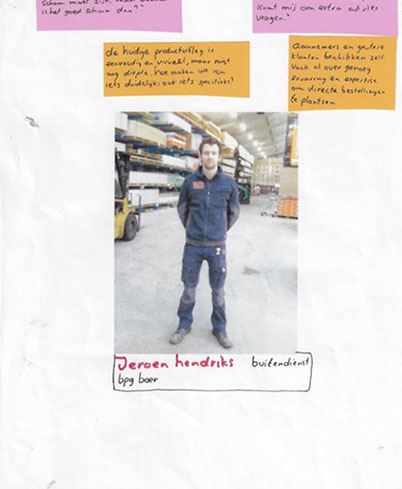 is het goed dan?"
komt mij om extra advies
vragen."
de huidige productuitleg is
eenvoudig en visueel, maar mist
nog diepte. hoe maken we van
iets duidelijks ook iets specifieks?
Aannemers en grotere
klanten beschikken zelf
vaak al over genoeg
ervaring en expertise
om directe bestellingen
te plaatsen
Jeroen hendriks buitendienst
bpg boer